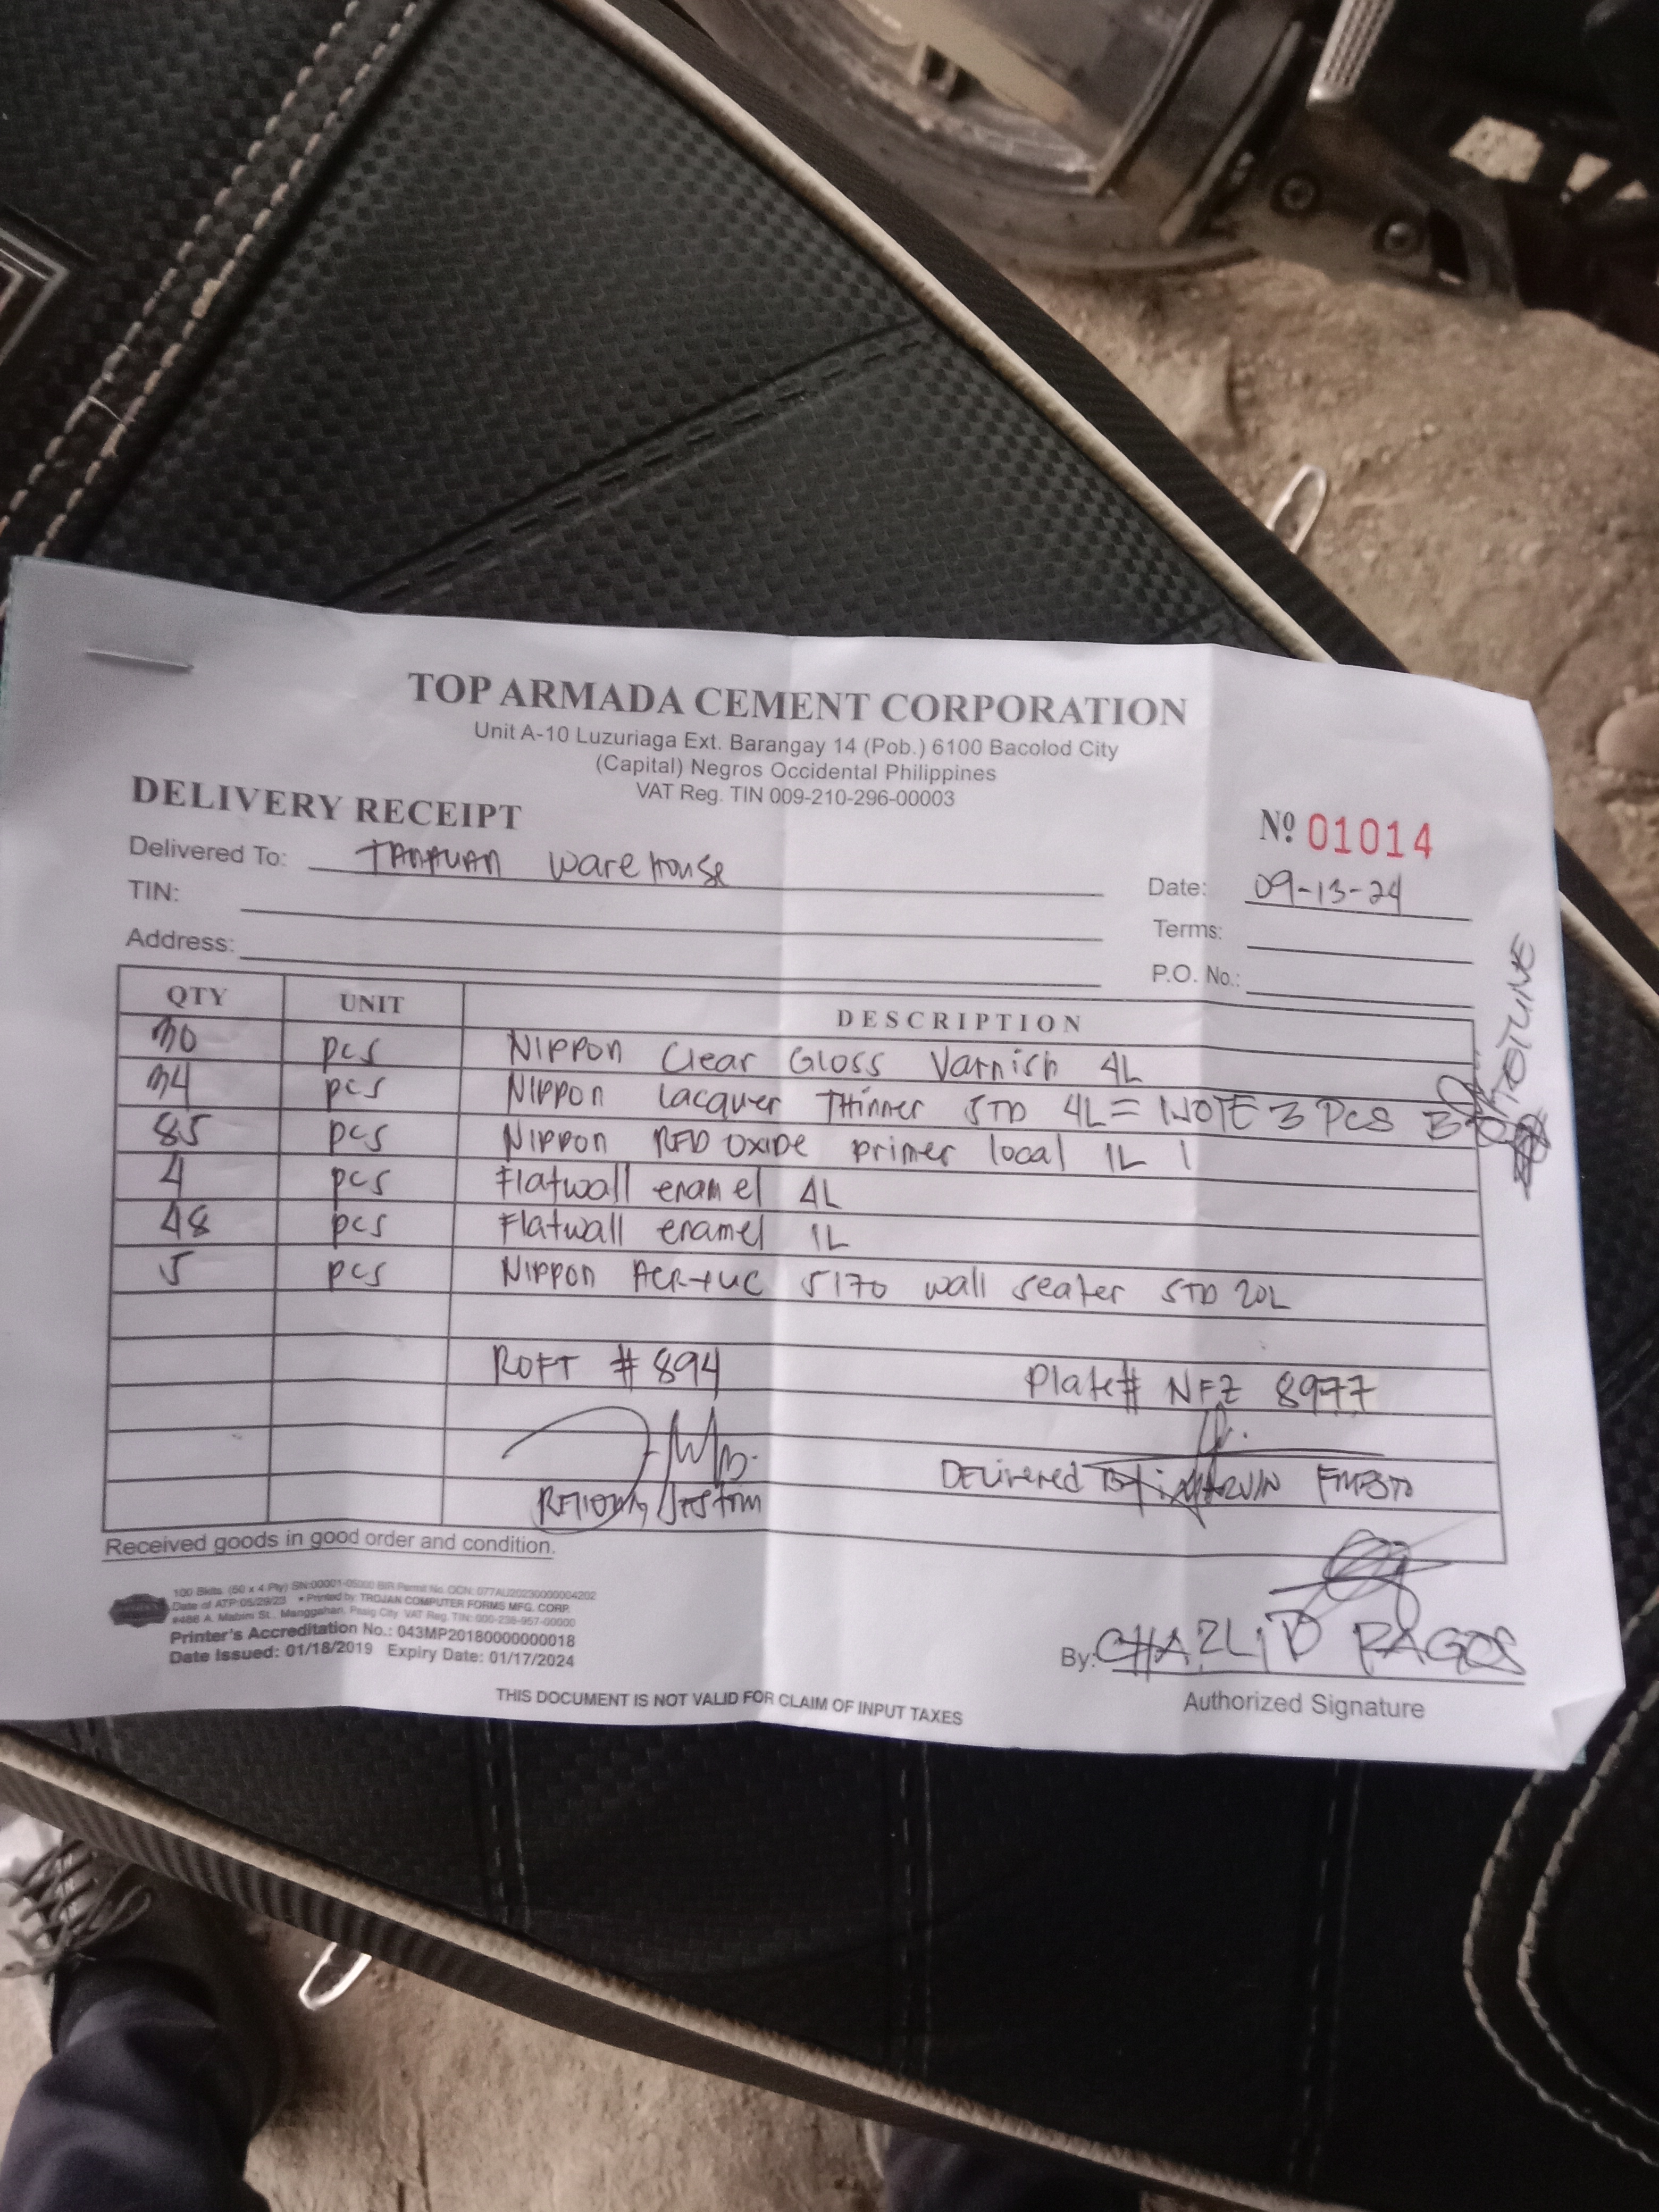 TOP ARMADA CEMENT CORPORATION
Unit A-10 Luzuriaga Ext. Barangay 14 (Pob.) 6100 Bacolod City
(Capital) Negros Occidental Philippines
VAT Reg. TIN 009-210-296-00003
DELIVERY RECEIPT
Nº 01014
Delivered To: TANAUAN warehouse
Date: 09-13-24
TIN:
Terms:
Address:
P.O. No.:
QTY UNIT DESCRIPTION
30 pcs Nippon Clear Gloss Varnish 4L
34 pcs Nippon Lacquer Thinner STD 4L = NOTE 3 PCS
85 pcs Nippon RED OXIDE primer local 1L
4 pcs Flatwall enamel 4L
48 pcs Flatwall enamel 1L
5 pcs Nippon 5170 wall sealer STD 20L
ROFT # 894
Plate# NFZ 8977
Delivered By: MARVIN
Received goods in good order and condition.
100 Bklts. (50 x 4 Ply) SN:00001-05000 BIR Permit No. OCN: 077AU20230000004202
Date of ATP:05/29/23 • Printed by: TROJAN COMPUTER FORMS MFG. CORP.
#486 A. Mabini St., Manggahan, Pasig City VAT Reg. TIN: 000-238-957-00000
Printer's Accreditation No.: 043MP20180000000018
Date Issued: 01/18/2019 Expiry Date: 01/17/2024
By: RAGOS
Authorized Signature
THIS DOCUMENT IS NOT VALID FOR CLAIM OF INPUT TAXES